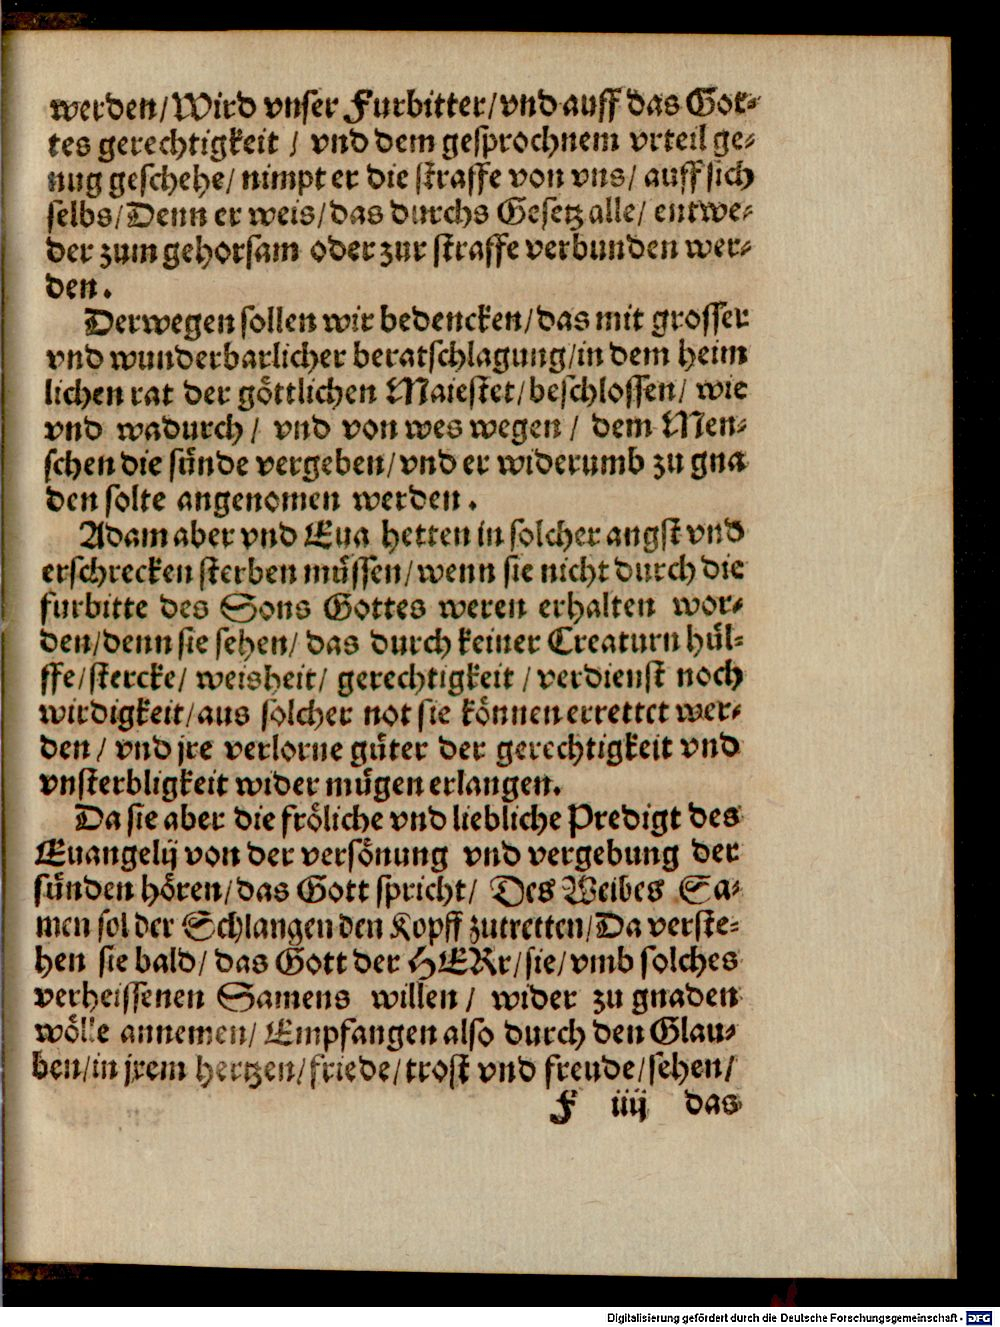 werden/Wird vnser Furbitter/vnd auff das Got-
tes gerechtigkeit / vnd dem gesprochnem vrteil ge-
nug geschehe/ nimpt er die straffe von vns/ auff sich
selbs/Denn er weis/das durchs Gesetz alle/ entwe-
der zum gehorsam oder zur straffe verbunden wer-
den.
Derwegen sollen wir bedencken/das mit grosser
vnd wunderbarlicher beratschlagung/in dem heim
lichen rat der göttlichen Maiestet/beschlossen/ wie
vnd wadurch/ vnd von wes wegen / dem Men-
schen die sünde vergeben/vnd er widerumb zu gna
den solte angenomen werden.
Adam aber vnd Eua hetten in solcher angst vnd
erschrecken sterben müssen/wenn sie nicht durch die
furbitte des Sons Gottes weren erhalten wor-
den/denn sie sehen/ das durch keiner Creaturn hül-
ffe/stercke/ weisheit/ gerechtigkeit /verdienst noch
wirdigkeit/aus solcher not sie können errettet wer-
den/ vnd jre verlorne güter der gerechtigkeit vnd
vnsterbligkeit wider mügen erlangen.
Da sie aber die fröliche vnd liebliche Predigt des
Euangelij von der versönung vnd vergebung der
sünden hören/das Gott spricht/ Des Weibes Sa-
men sol der Schlangen den Kopff zutretten/Da verste-
hen sie bald/ das Gott der HERr/sie/vmb solches
verheissenen Samens willen/ wider zu gnaden
wölle annemen/ Empfangen also durch den Glau-
ben/in jrem hertzen/friede/trost vnd freude/sehen/
F iiij das
Digitalisierung gefördert durch die Deutsche Forschungsgemeinschaft - DFG